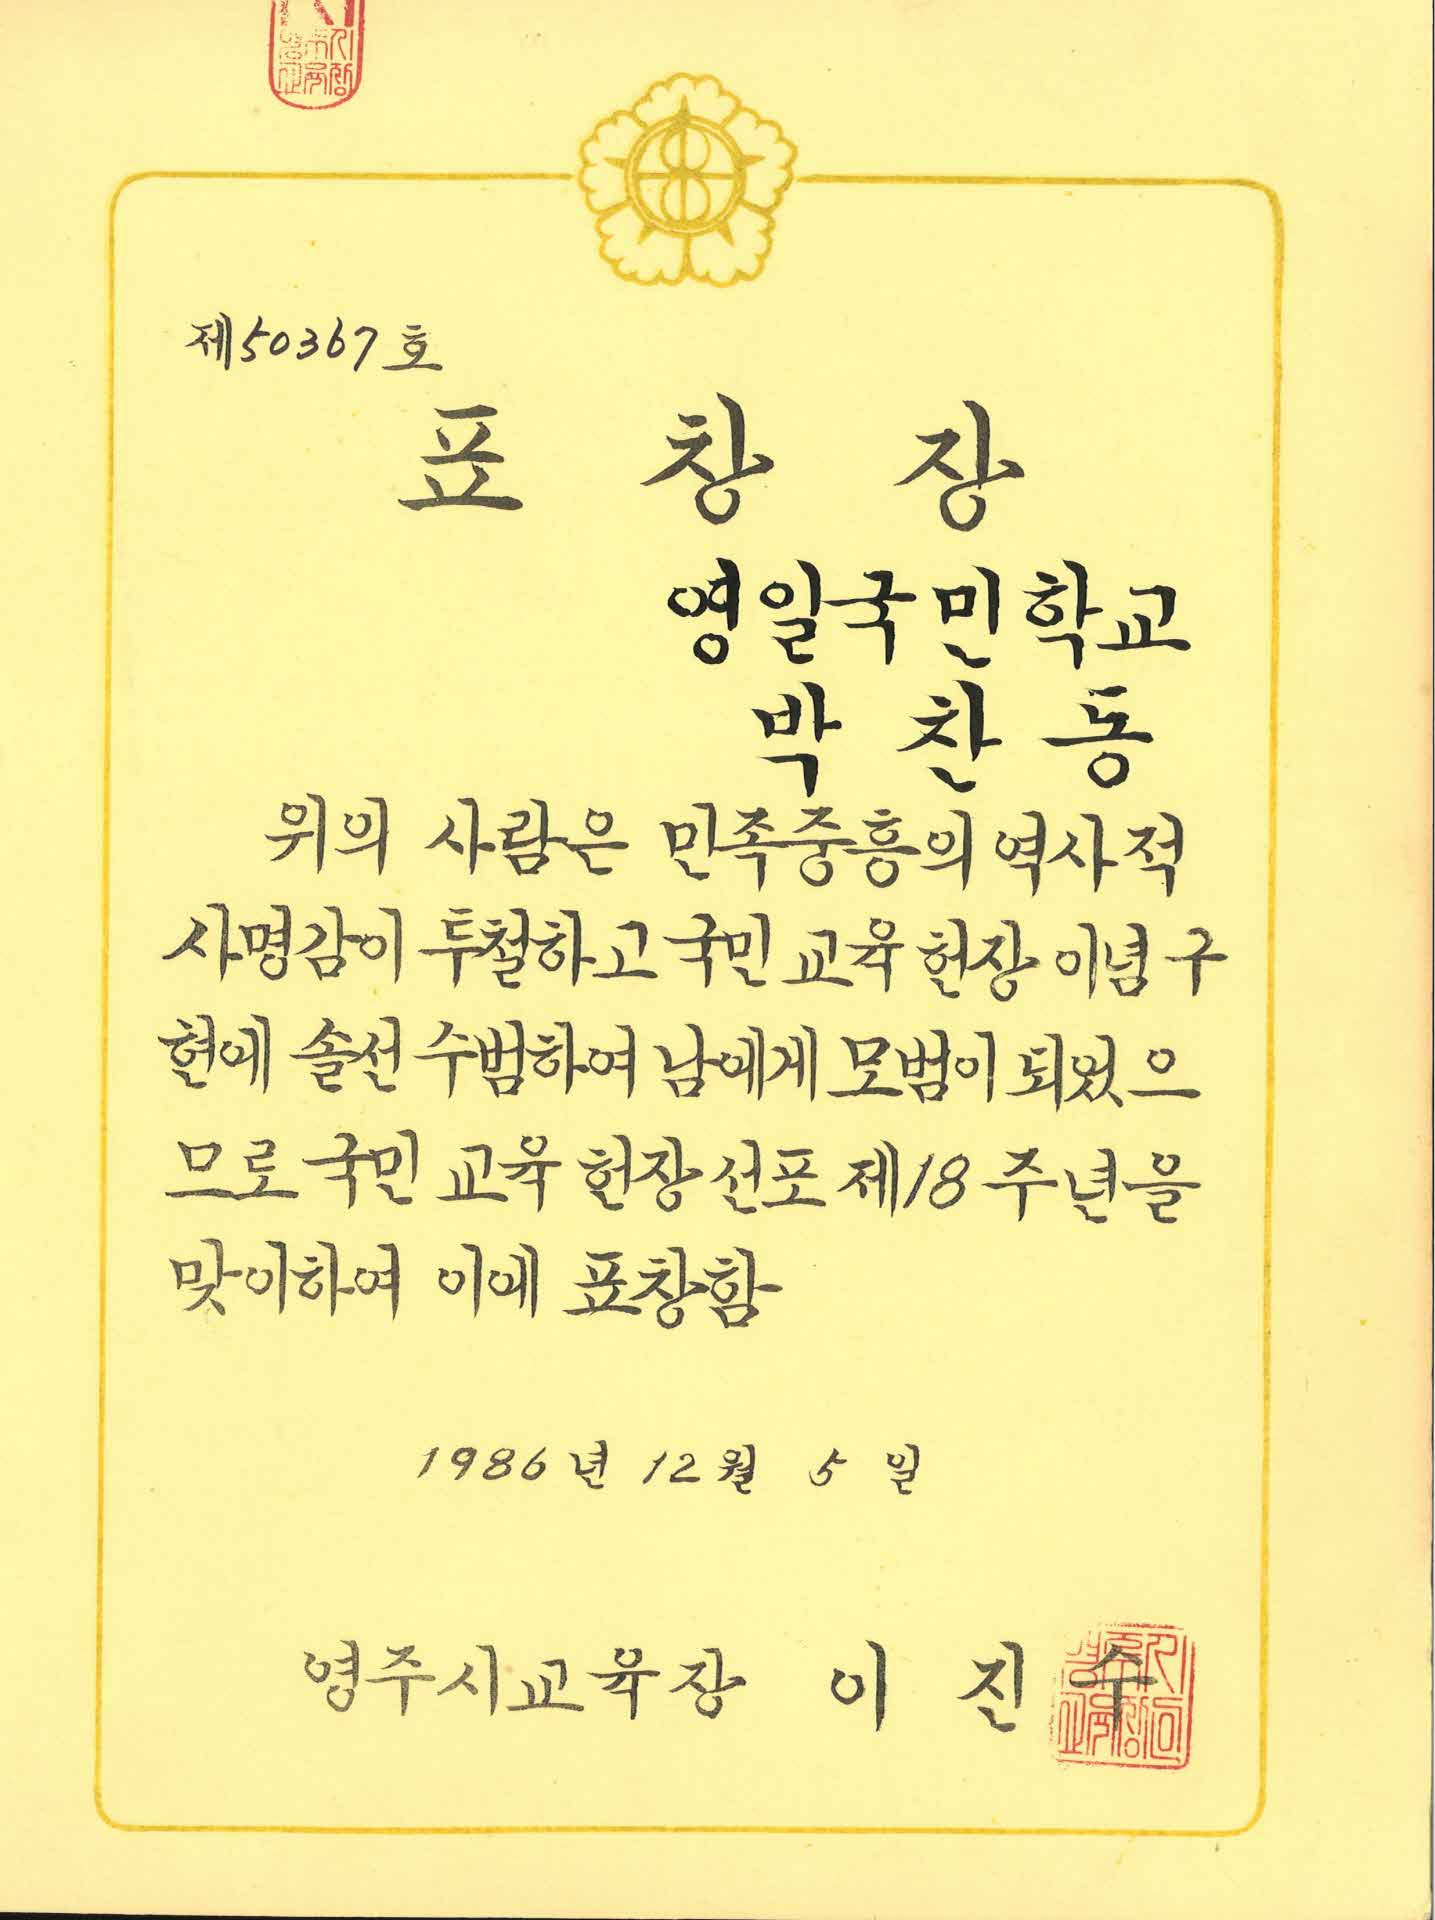 제50367호
표 창 장
영일국민학교
박 찬 동
위의 사람은 민족중흥의 역사적
사명감이 투철하고 국민 교육 헌장 이념 구
현에 솔선 수범하여 남에게 모범이 되었으
므로 국민 교육 헌장 선포 제18주년을
맞이하여 이에 표창함
1986년 12월 5일
영주시교육장 이 진 수